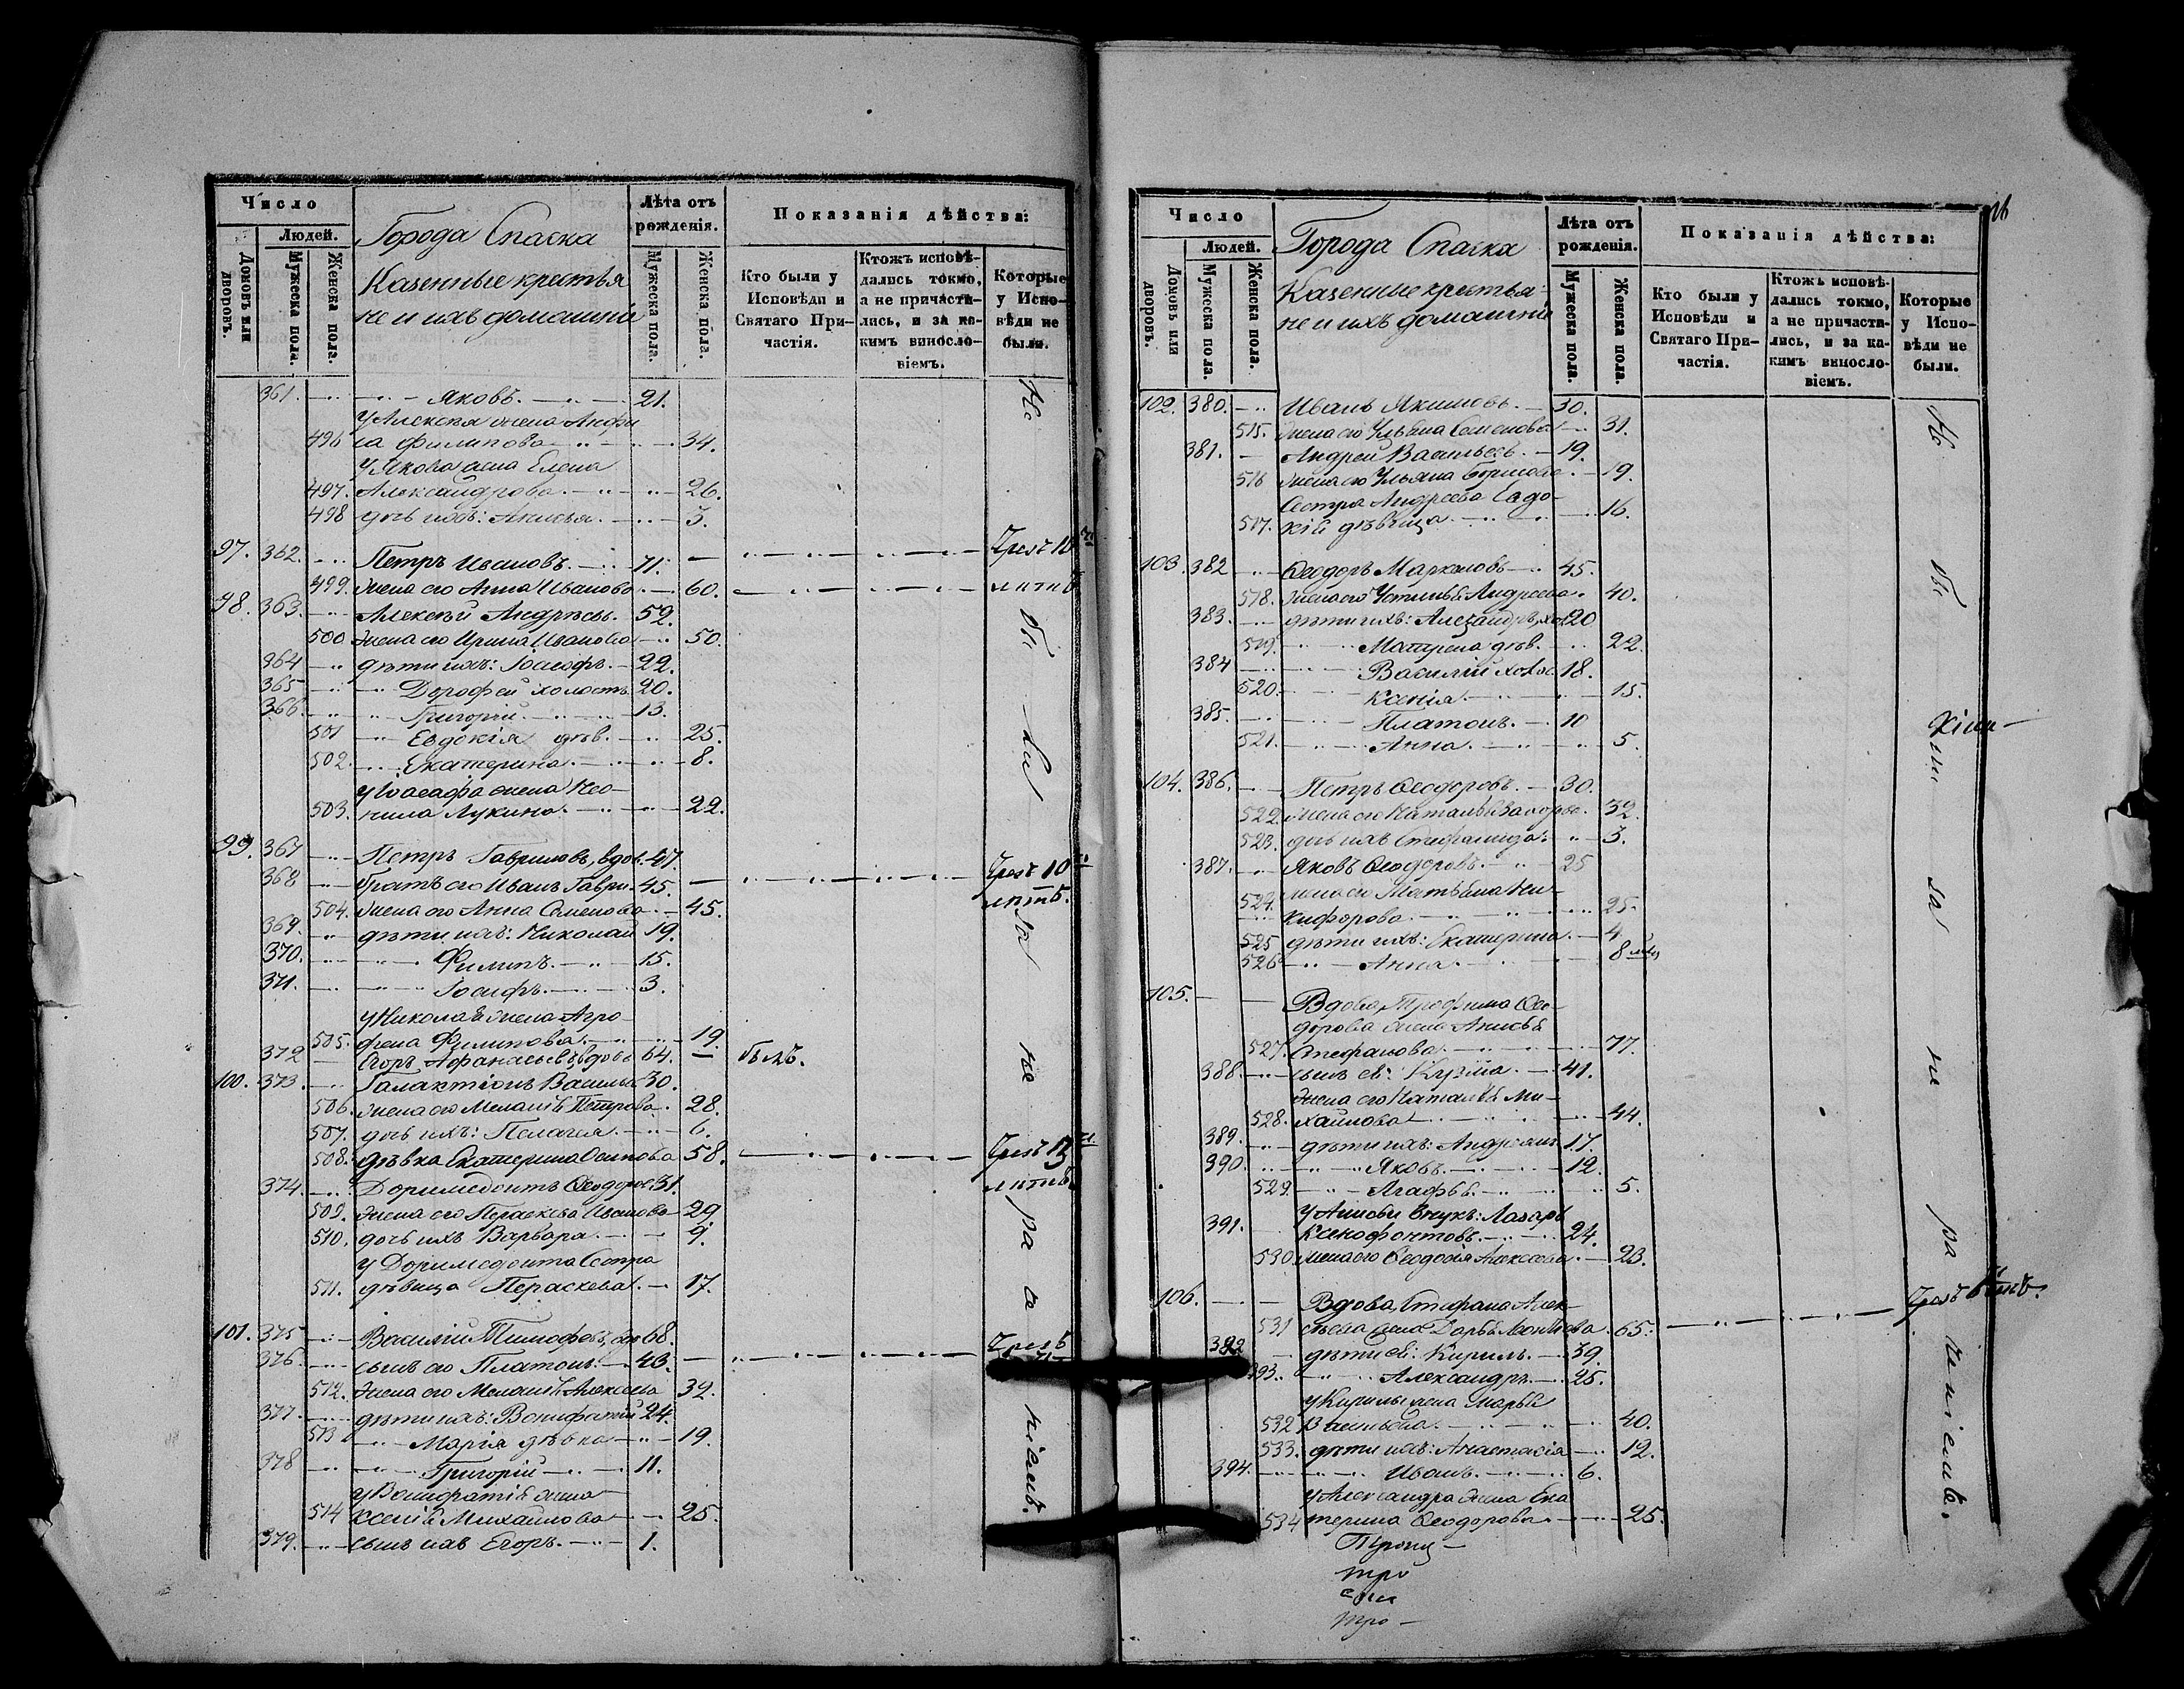 Число
Людей.
Домовъ или дворовъ.
Мужеска пола.
Женска пола.
Города Спаска
Казенные крестья
не и ихъ домашніи
Лѣта отъ рожденія.
Мужеска пола.
Женска пола.
Показанія дѣйства:
Кто были у Исповѣди и Святаго Причастія.
Ктожъ исповѣдались токмо, а не причастились, и за какимъ винословіемъ.
Которые у Исповѣди не были.
361. Яковъ. 21.
У Алексѣя жена Анфи
496 са Филипова 34.
У Якова жена Елена
497. Александрова. 26.
498 дочь ихъ: Анисья. 3.
97. 362. Петръ Ивановъ. 71. Чрезъ 10
499. Жена его Анна Иванова 60. лѣтъ
98. 363. Алексѣй Андрѣевъ. 52.
500 Жена его Ирина Иванова 50.
364 дѣти ихъ: Іоасафъ. 22.
365 Дорофей холостъ. 20.
366. Григорій. 13.
501 Евдокія дѣв. 25.
502. Екатерина. 8.
У Іоасафа жена Нео-
503. нила Лукина. 22.
99. 367 Петръ Гавриловъ, вдов. 47.
368 братъ его Иванъ Гаври. 45. Чрезъ 10
504. Жена его Анна Семенова 45. лѣтъ.
369. дѣти ихъ: Николай 19.
370. Филипъ. 15.
371. Іосифъ. 3.
У Николая жена Агро-
505. фена Филипова. 19.
372 Егоръ Афанасьевъ, вдовъ 64. былъ.
100. 373. Галактіонъ Василье. 30.
506. Жена его Меланія Петрова. 28.
507. дочь ихъ: Пелагея. 6.
508. дѣвка Екатерина Осипова 58. Чрезъ 13
374. Доримедонтъ Ѳеодоров. 31. лѣтъ.
509. Жена его Пераскева Иванова 29
510. дочь ихъ Варвара. 9.
У Доримедонта Сестра
511. дѣвица Пераскева. 17.
101. 375 Василій Тимофеевъ, вдов 68.
376. сынъ его Платонъ. 43. Чрезъ
512. Жена его Меланія Алексѣева 32.
377. дѣти ихъ: Вонифатій 24.
513 Марія дѣвка 19.
378 Григорій 11.
У Вонифатія жена
514 Ксенія Михайлова 25.
379. сынъ ихъ Егоръ. 1.
Не бы ли за не ра с кіемъ.
26
Число
Людей.
Домовъ или дворовъ.
Мужеска пола.
Женска пола.
Города Спаска
Казенные крестья-
не и ихъ домашніи
Лѣта отъ рожденія.
Мужеска пола.
Женска пола.
Показанія дѣйства:
Кто были у Исповѣди и Святаго Причастія.
Ктожъ исповѣдались токмо, а не причастились, и за какимъ винословіемъ.
Которые у Исповѣди не были.
102. 380. Иванъ Якимовъ. 30.
515. Жена его Ульяна Семенова 31.
381. Андрей Васильевъ. 19.
516 Жена его Ульяна Борисова. 19.
Сестра Андреева Евдо-
517. кій дѣвица. 16.
103. 382 Ѳеодоръ Маркеловъ 45.
518. Жена его Устинья Андреева. 40.
383. дѣти ихъ: Александръ, хол 20
519. Матрена дѣв. 22.
384 Василій холос. 18.
520. Ксенія. 15.
385. Платонъ. 10
521. Анна. 5.
104. 386. Петръ Ѳеодоровъ. 30.
522. Жена его Наталья 32.
523. дочь ихъ Стефанида. 3.
387. Яковъ Ѳеодоровъ. 25
Жена его Матрена Ни-
524. кифорова. 25.
525 дѣти ихъ: Екатерина. 4.
526 Анна. 8 мѣс
105. Вдова, Трофима Ѳео-
дорова жена Анисья
527. Стефанова. 77.
388. сынъ ея: Кузма. 41.
Жена его Наталья Ми-
528. хайлова 44.
389. дѣти ихъ: Андреянъ. 17.
390. Яковъ. 12.
529. Агафья. 5.
У Анисьи внукъ: Лазарь
391. Ксенофонтовъ. 24.
530. Жена его Ѳеодосія Алексеева. 23.
106. Вдова, Стефана Алек-
531 сѣева жена Дарья Леонтьева 65. Чрезъ
392 дѣти ея: Кирилъ. 39.
393. Александръ. 25.
У Кирилы жена Марья
532 Васильева. 40.
533. дѣти ихъ: Анастасія 12.
394. Иванъ. 6.
У Александра Жена Ека
534 терина Ѳеодорова. 25.
Не бы ли за не ра че ніемъ.